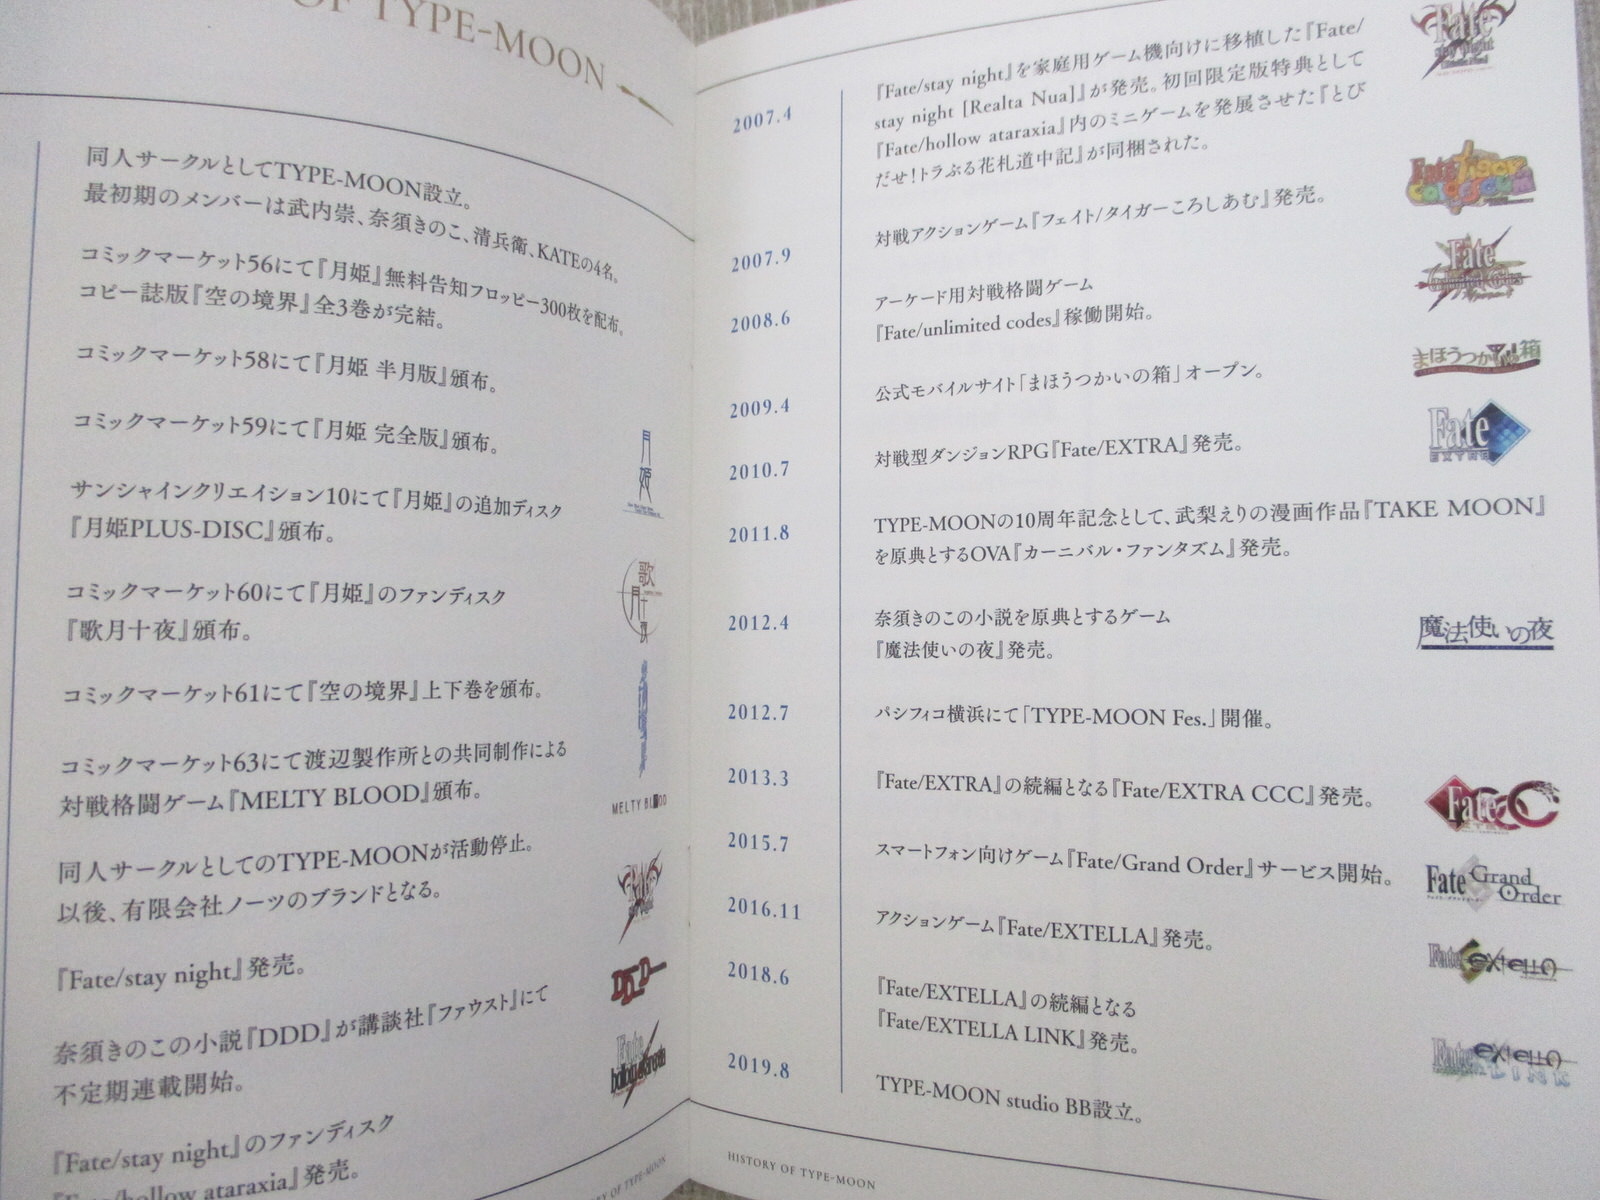 OF TYPE-MOON
同人サークルとしてTYPE-MOON設立。
最初期のメンバーは武内崇、奈須きのこ、清兵衛、KATEの4名。
コミックマーケット56にて『月姫』無料告知フロッピー300枚を配布。
コピー誌版『空の境界』全3巻が完結。
コミックマーケット58にて『月姫 半月版』頒布。
コミックマーケット59にて『月姫 完全版』頒布。
月姫
サンシャインクリエイション10にて『月姫』の追加ディスク
『月姫PLUS-DISC』頒布。
コミックマーケット60にて『月姫』のファンディスク
『歌月十夜』頒布。
歌月十夜
コミックマーケット61にて『空の境界』上下巻を頒布。
コミックマーケット63にて渡辺製作所との共同制作による
対戦格闘ゲーム『MELTY BLOOD』頒布。
MELTY BLOOD
同人サークルとしてのTYPE-MOONが活動停止。
以後、有限会社ノーツのブランドとなる。
『Fate/stay night』発売。
奈須きのこの小説『DDD』が講談社『ファウスト』にて
不定期連載開始。
DDD
Fate
hollow ataraxia
『Fate/stay night』のファンディスク
『Fate/hollow ataraxia』発売。
HISTORY OF TYPE-MOON
2007.4
『Fate/stay night』を家庭用ゲーム機向けに移植した『Fate/
stay night [Realta Nua]』が発売。初回限定版特典として
『Fate/hollow ataraxia』内のミニゲームを発展させた『とび
だせ!トラぶる花札道中記』が同梱された。
Fate
stay night
2007.9
対戦アクションゲーム『フェイト/タイガーころしあむ』発売。
Fate Tiger
Colosseum
2008.6
アーケード用対戦格闘ゲーム
『Fate/unlimited codes』稼働開始。
Fate
unlimited codes
2009.4
公式モバイルサイト「まほうつかいの箱」オープン。
まほうつかいの箱
2010.7
対戦型ダンジョンRPG『Fate/EXTRA』発売。
Fate
EXTRA
2011.8
TYPE-MOONの10周年記念として、武梨えりの漫画作品『TAKE MOON』
を原典とするOVA『カーニバル・ファンタズム』発売。
2012.4
奈須きのこの小説を原典とするゲーム
『魔法使いの夜』発売。
魔法使いの夜
2012.7
パシフィコ横浜にて「TYPE-MOON Fes.」開催。
2013.3
『Fate/EXTRA』の続編となる『Fate/EXTRA CCC』発売。
Fate CCC
2015.7
スマートフォン向けゲーム『Fate/Grand Order』サービス開始。
Fate Grand
Order
2016.11
アクションゲーム『Fate/EXTELLA』発売。
Fate EXTELLA
2018.6
『Fate/EXTELLA』の続編となる
『Fate/EXTELLA LINK』発売。
Fate EXTELLA
LINK
2019.8
TYPE-MOON studio BB設立。
HISTORY OF TYPE-MOON